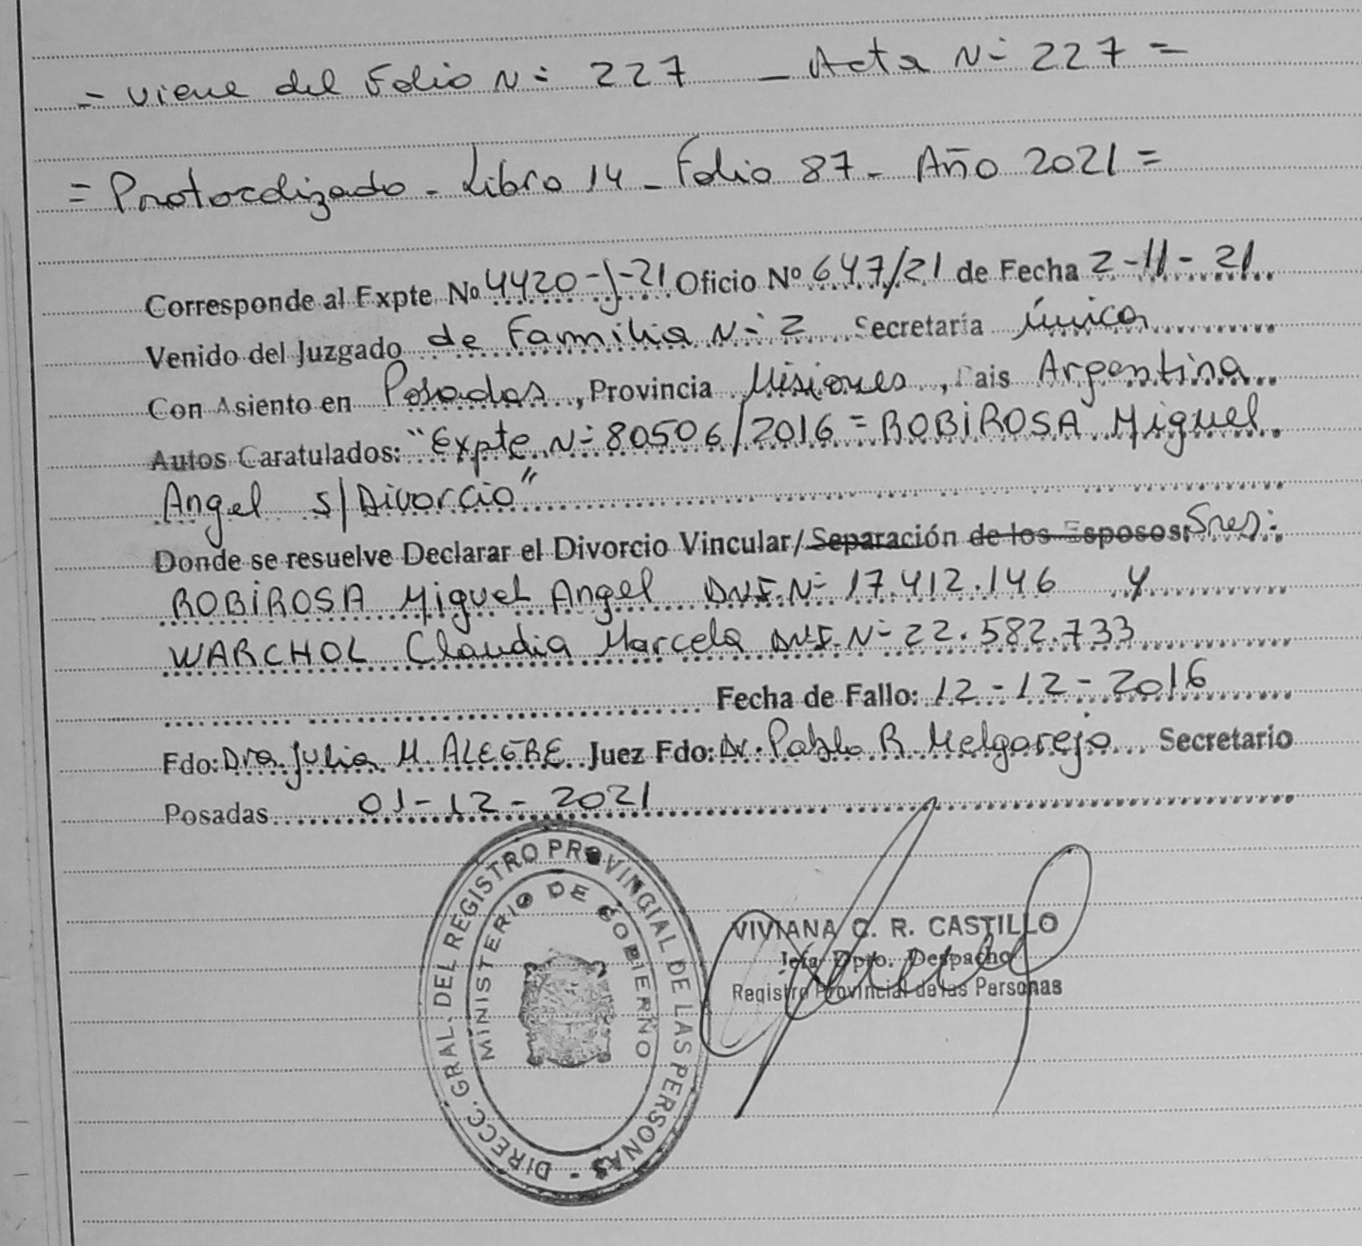 = Viene del Folio N= 227 - Acta N= 227 =
= Protocolizado - Libro 14 - Folio 87 - Año 2021 =
Corresponde al Expte No 4420-J-21 Oficio Nº 647/21 de Fecha 2-11-21
Venido del Juzgado de Familia N=2 Secretaría única
Con Asiento en Posadas, Provincia Misiones, Pais Argentina
Autos Caratulados: "Expte N= 80506/2016 = ROBIROSA Miguel
Angel s/Divorcio"
Donde se resuelve Declarar el Divorcio Vincular/Separación de los Esposos: Sres:
ROBIROSA Miguel Angel DNI.N= 17.412.146 y
WARCHOL Claudia Marcela DNI.N= 22.582.733
Fecha de Fallo: 12-12-2016
Fdo: Dra. Julia M. ALEGRE Juez Fdo: Dr. Pablo R. Melgarejo Secretario
Posadas 01-12-2021
DIRECC. GRAL. DEL REGISTRO PROVINCIAL DE LAS PERSONAS -
MINISTERIO DE GOBIERNO
VIVIANA C. R. CASTILLO
Jefa Dpto. Despacho
Registro Provincial de las Personas